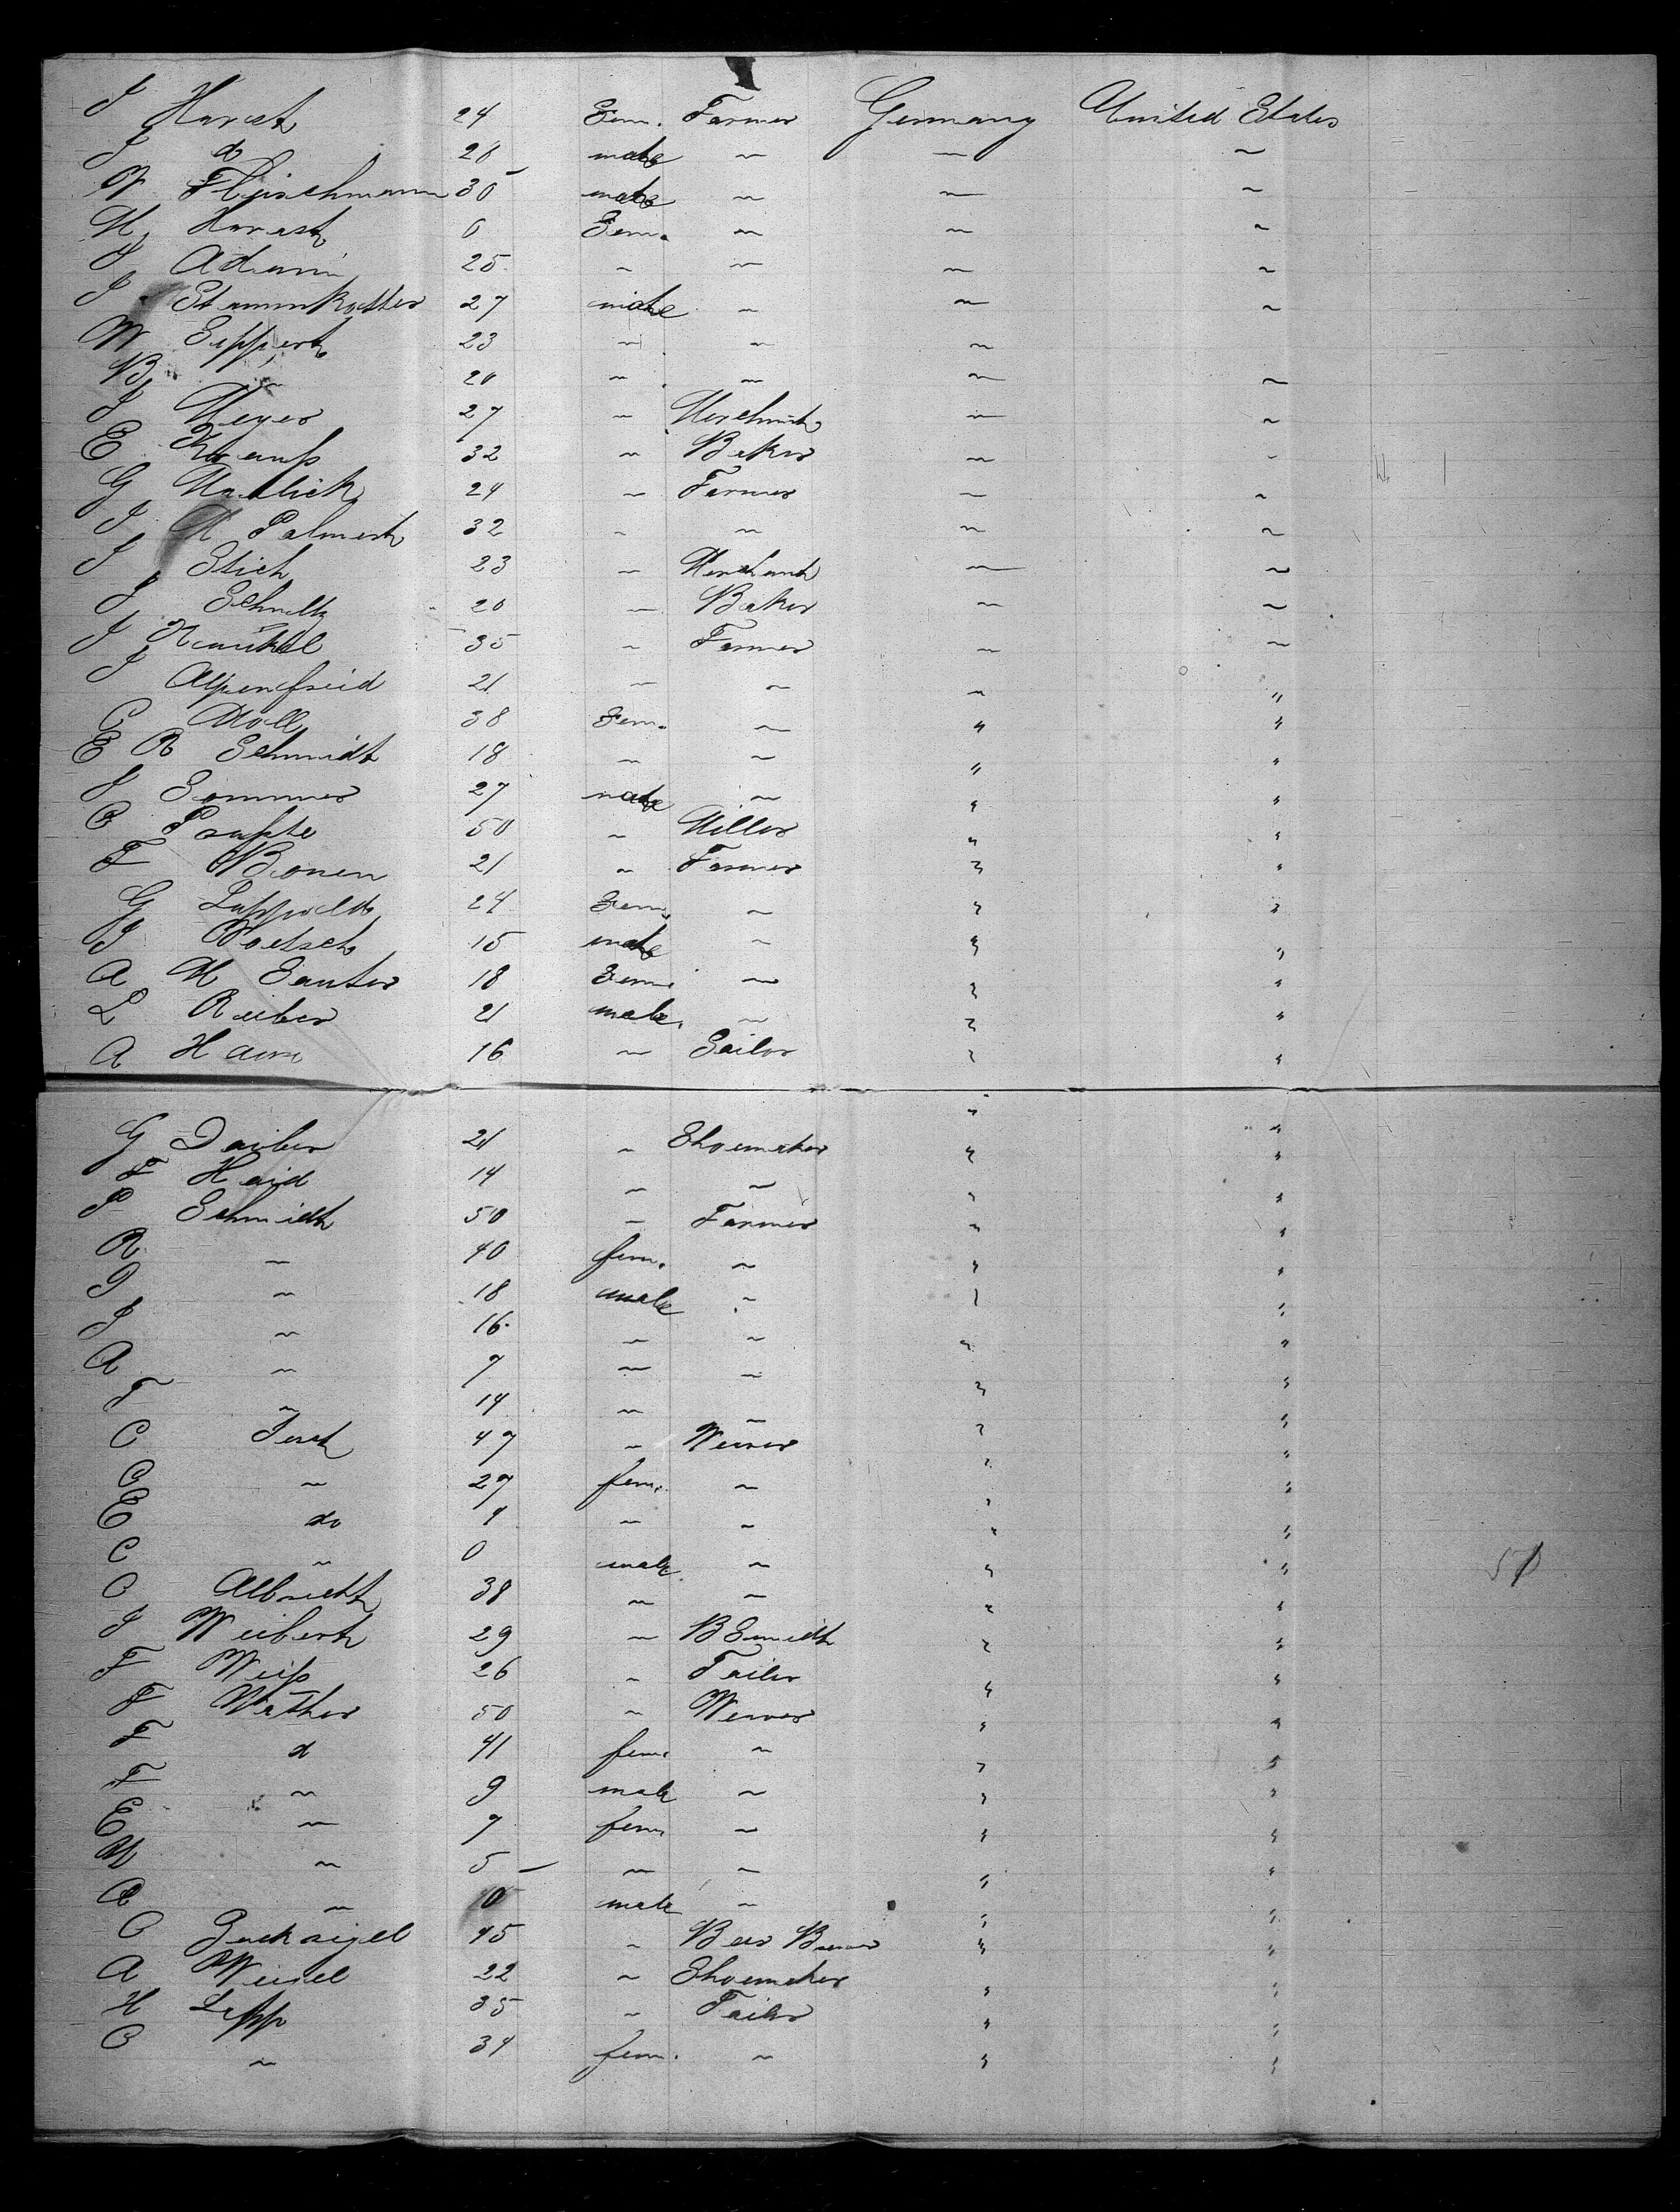 J Harat 24 Fem. Farmer Germany United States
J do 28 male ~ ~ ~
W Fleischmann 30 male ~ ~ ~
M Harast 0 Fem. ~ ~ ~
J Adam 25 ~ ~ ~ ~
J Stammkotter 27 male ~ ~ ~
W Seppert 23 ~ ~ ~ ~
B ~ 20 ~ ~ ~ ~
J Meyer 27 ~ Merchant ~ ~
E Krauß 32 ~ Baker ~ ~
G 24 ~ Farmer ~ ~
J M Palmert 32 ~ ~ ~ ~
J Stich 23 ~ Merchant ~ ~
J Schultz 20 ~ Baker ~ ~
J 35 ~ Farmer ~ ~
J Alpenfreid 21 ~ ~ ~ "
C Moll 38 Fem. ~ " "
E R Schmidt 18 ~ ~ " "
J Sommer 27 male ~ " "
C 50 ~ Miller " "
F Bonen 21 ~ Farmer " "
G Luppold 24 Fem. ~ " "
J Woetsch 15 male ~ " "
A M Sauter 18 Fem. ~ " "
L Reiber 21 male. ~ " "
A Ham 16 ~ Sailor " "
G Daiber 21 ~ Shoemaker " "
F Haid 14 ~ ~ " "
P Schmidt 50 ~ Farmer " "
R ~ 40 fem. ~ " "
J ~ 18 male ~ " "
J ~ 16 ~ ~ " "
A ~ 7 ~ ~ " "
F ~ 14 ~ ~ " "
C 47 ~ Wever " "
C ~ 27 fem. ~ " "
E do 9 ~ ~ " "
C ~ 0 male ~ " "
C Albrecht 38 ~ ~ " "
J Weibert 29 ~ B Smidt " "
F Weiß 26 ~ Tailor " "
F Wather 50 ~ Wever " "
F d 41 fem. ~ " "
F ~ 9 male ~ " "
E ~ 7 fem ~ " "
M ~ 5 ~ ~ " "
A ~ 0 male ~ " "
C 45 ~ Beer Brewer " "
A Weisel 22 ~ Shoemaker " "
H Lepp 35 ~ Tailor " "
C ~ 34 fem. ~ " "